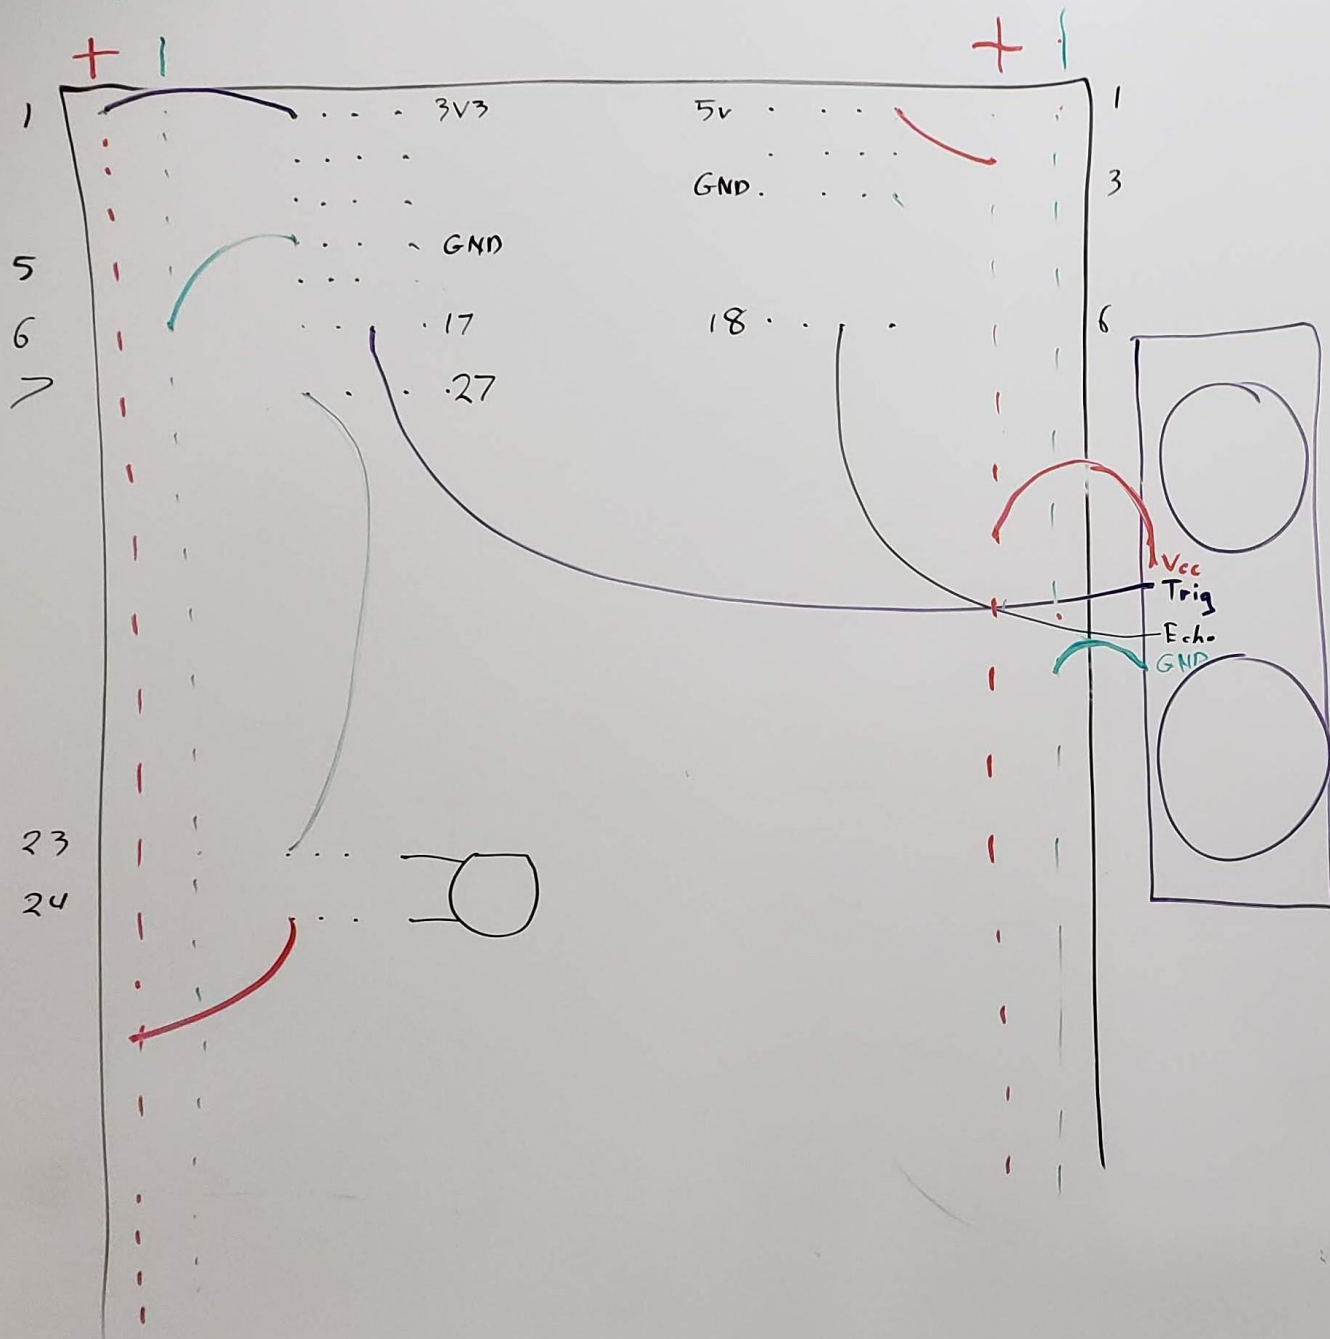 + | + |
1 3V3 5v 1
GND. 3
5 GND
6 17 18 6
7 27
Vcc
Trig
Echo
GND
23
24